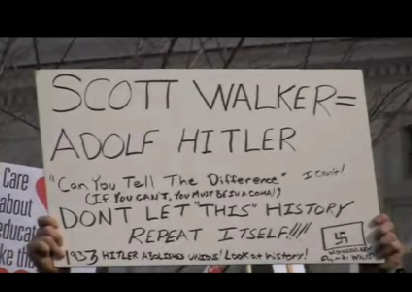 SCOTT WALKER=
ADOLF HITLER
"Can You Tell The Difference" I can't!
(IF YOU CAN'T, YOU MUST BE IN A COMA!)
DONT LET "THIS" HISTORY
REPEAT ITSELF!!!!
1933 HITLER ABOLISHED UNIONS! Look at history!
Care
about
educat
ke th